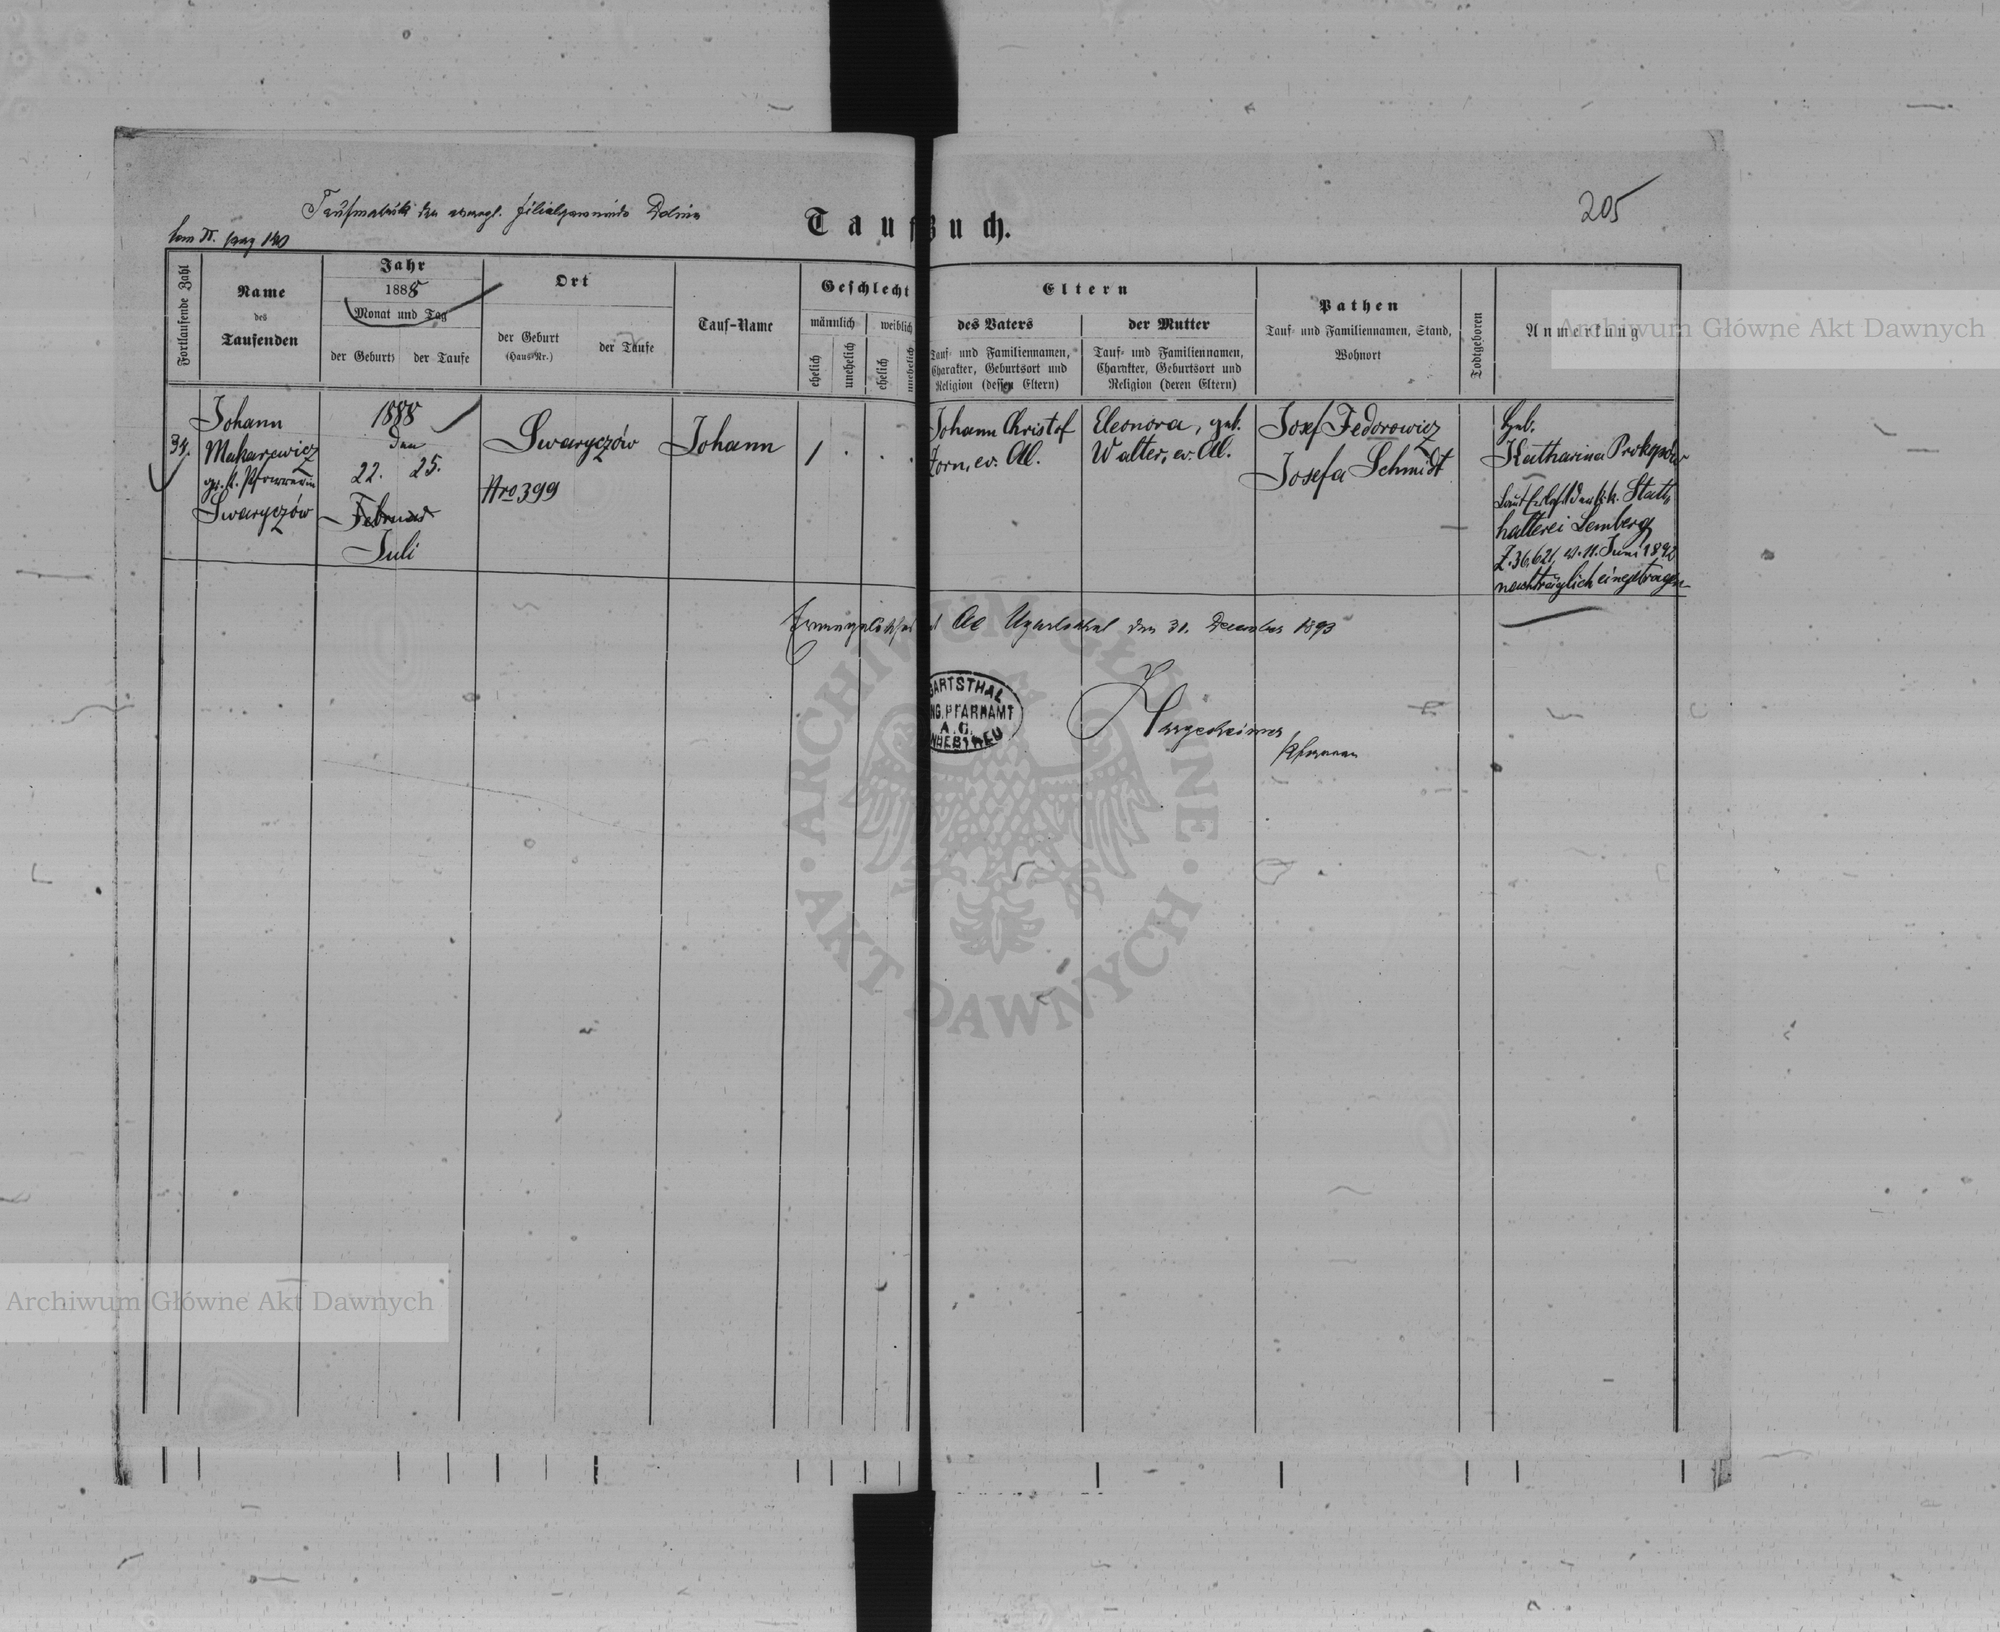 205
Taufmatrik der evangl. Filialgemeinde Dolina
Taufbuch.
tom II. pag 140
Fortlaufende Zahl
Name
des
Taufenden
Jahr
1888
Monat und Tag
der Geburt
der Taufe
Ort
der Geburt
(Haus-Nr.)
der Taufe
Tauf-Name
Geschlecht
männlich
weiblich
ehelich
unehelich
ehelich
unehelich
Eltern
des Vaters
Tauf- und Familiennamen,
Charakter, Geburtsort und
Religion (dessen Eltern)
der Mutter
Tauf- und Familiennamen,
Charakter, Geburtsort und
Religion (deren Eltern)
Pathen
Tauf- und Familiennamen, Stand,
Wohnort
Todtgeboren
Anmerkung
34.
Johann
Makarewicz
gr. k. Pfarrer in
Swaryczów
1888
den
22. 25.
Februar
Juli
Swaryczów
Nro 399
Johann
1
Johann Christof
Zorn, ev. AC.
Eleonora, geb.
Walter, ev. AC.
Josef Fedorowicz
Josefa Schmidt
Heb.
Katharina Prokopów
Laut der k.k. Statt
halterei Lemberg
Z. 36.621, v. 11. Juni 1892
nachträglich eingetragen
AC Ugartsthal den 31. December 1893
GARTSTHAL
NG. PFARRAMT
A. C.
Hargesheimer
Pfarrer
Archiwum Główne Akt Dawnych
ARCHIWUM GŁÓWNE
AKT DAWNYCH
Archiwum Główne Akt Dawnych